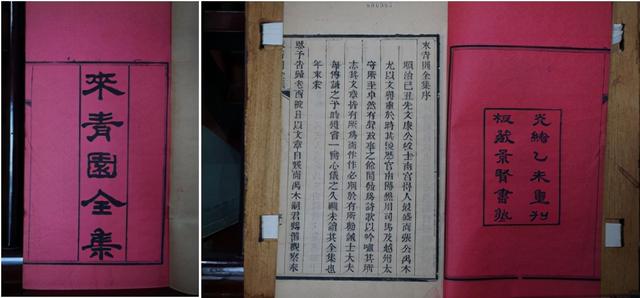 來青園全集
光緒乙未重刊
板藏景賢書塾
來青園全集序
順治己丑先文康公校士南宮得人最盛而張公禹木
尤以文學重於時其後 官南陽 司馬及越州太
守所至卓然有聲政事之餘間發為詩歌以吟嘯其所
志其文章皆有所為而作作必期於有所勸誡士大夫
每傳誦之予時獲嘗一臠心儀之久顧未讀其全集也
年來蒙
恩予告歸老西陂日以文章自娛而禹木嗣君 觀察來